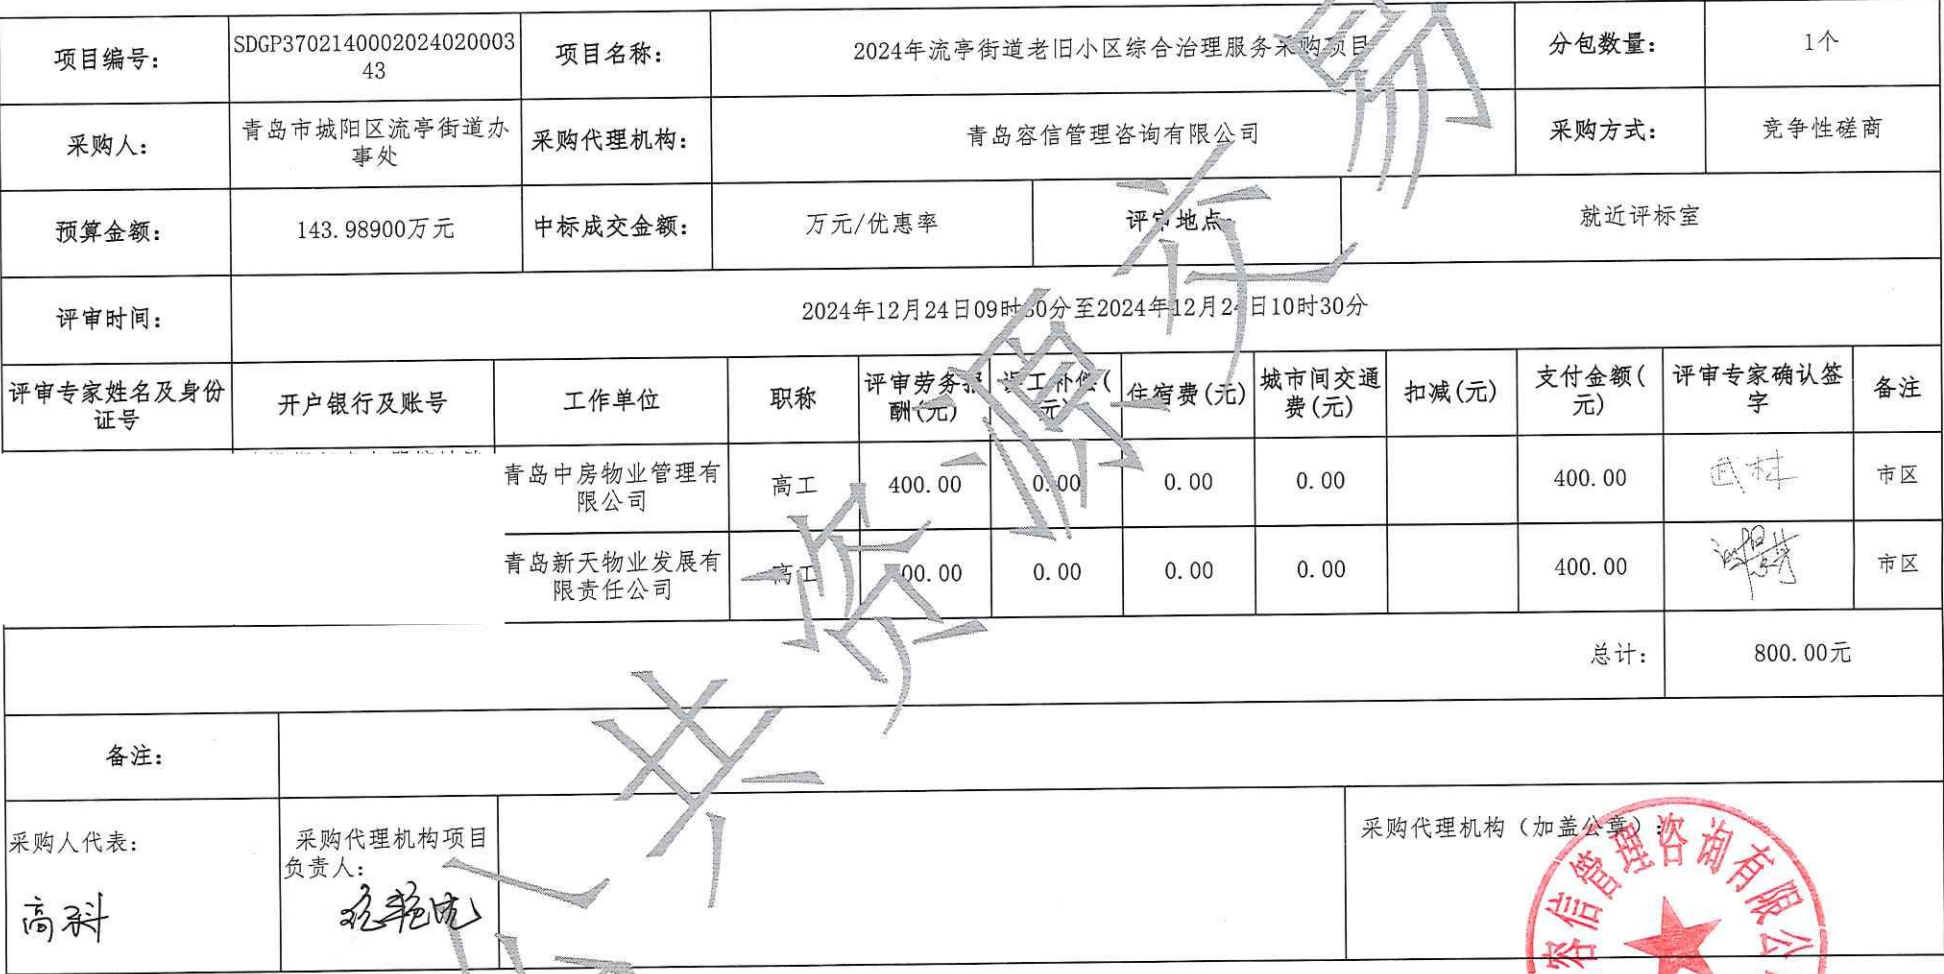 项目编号:
SDGP3702140002024020003
43
项目名称:
2024年流亭街道老旧小区综合治理服务采购项目
分包数量:
1个
采购人:
青岛市城阳区流亭街道办
事处
采购代理机构:
青岛容信管理咨询有限公司
采购方式:
竞争性磋商
预算金额:
143.98900万元
中标成交金额:
万元/优惠率
评审地点:
就近评标室
评审时间:
2024年12月24日09时30分至2024年12月24日10时30分
评审专家姓名及身份
证号
开户银行及账号
工作单位
职称
评审劳务报
酬(元)
误工补偿(
元)
住宿费(元)
城市间交通
费(元)
扣减(元)
支付金额(
元)
评审专家确认签
字
备注
青岛中房物业管理有
限公司
高工
400.00
0.00
0.00
0.00
400.00
武林
市区
青岛新天物业发展有
限责任公司
高工
00.00
0.00
0.00
0.00
400.00
市区
总计:
800.00元
备注:
采购人代表:
高科
采购代理机构项目
负责人:
采购代理机构（加盖公章）:
容信管理咨询有限公
共资源交易